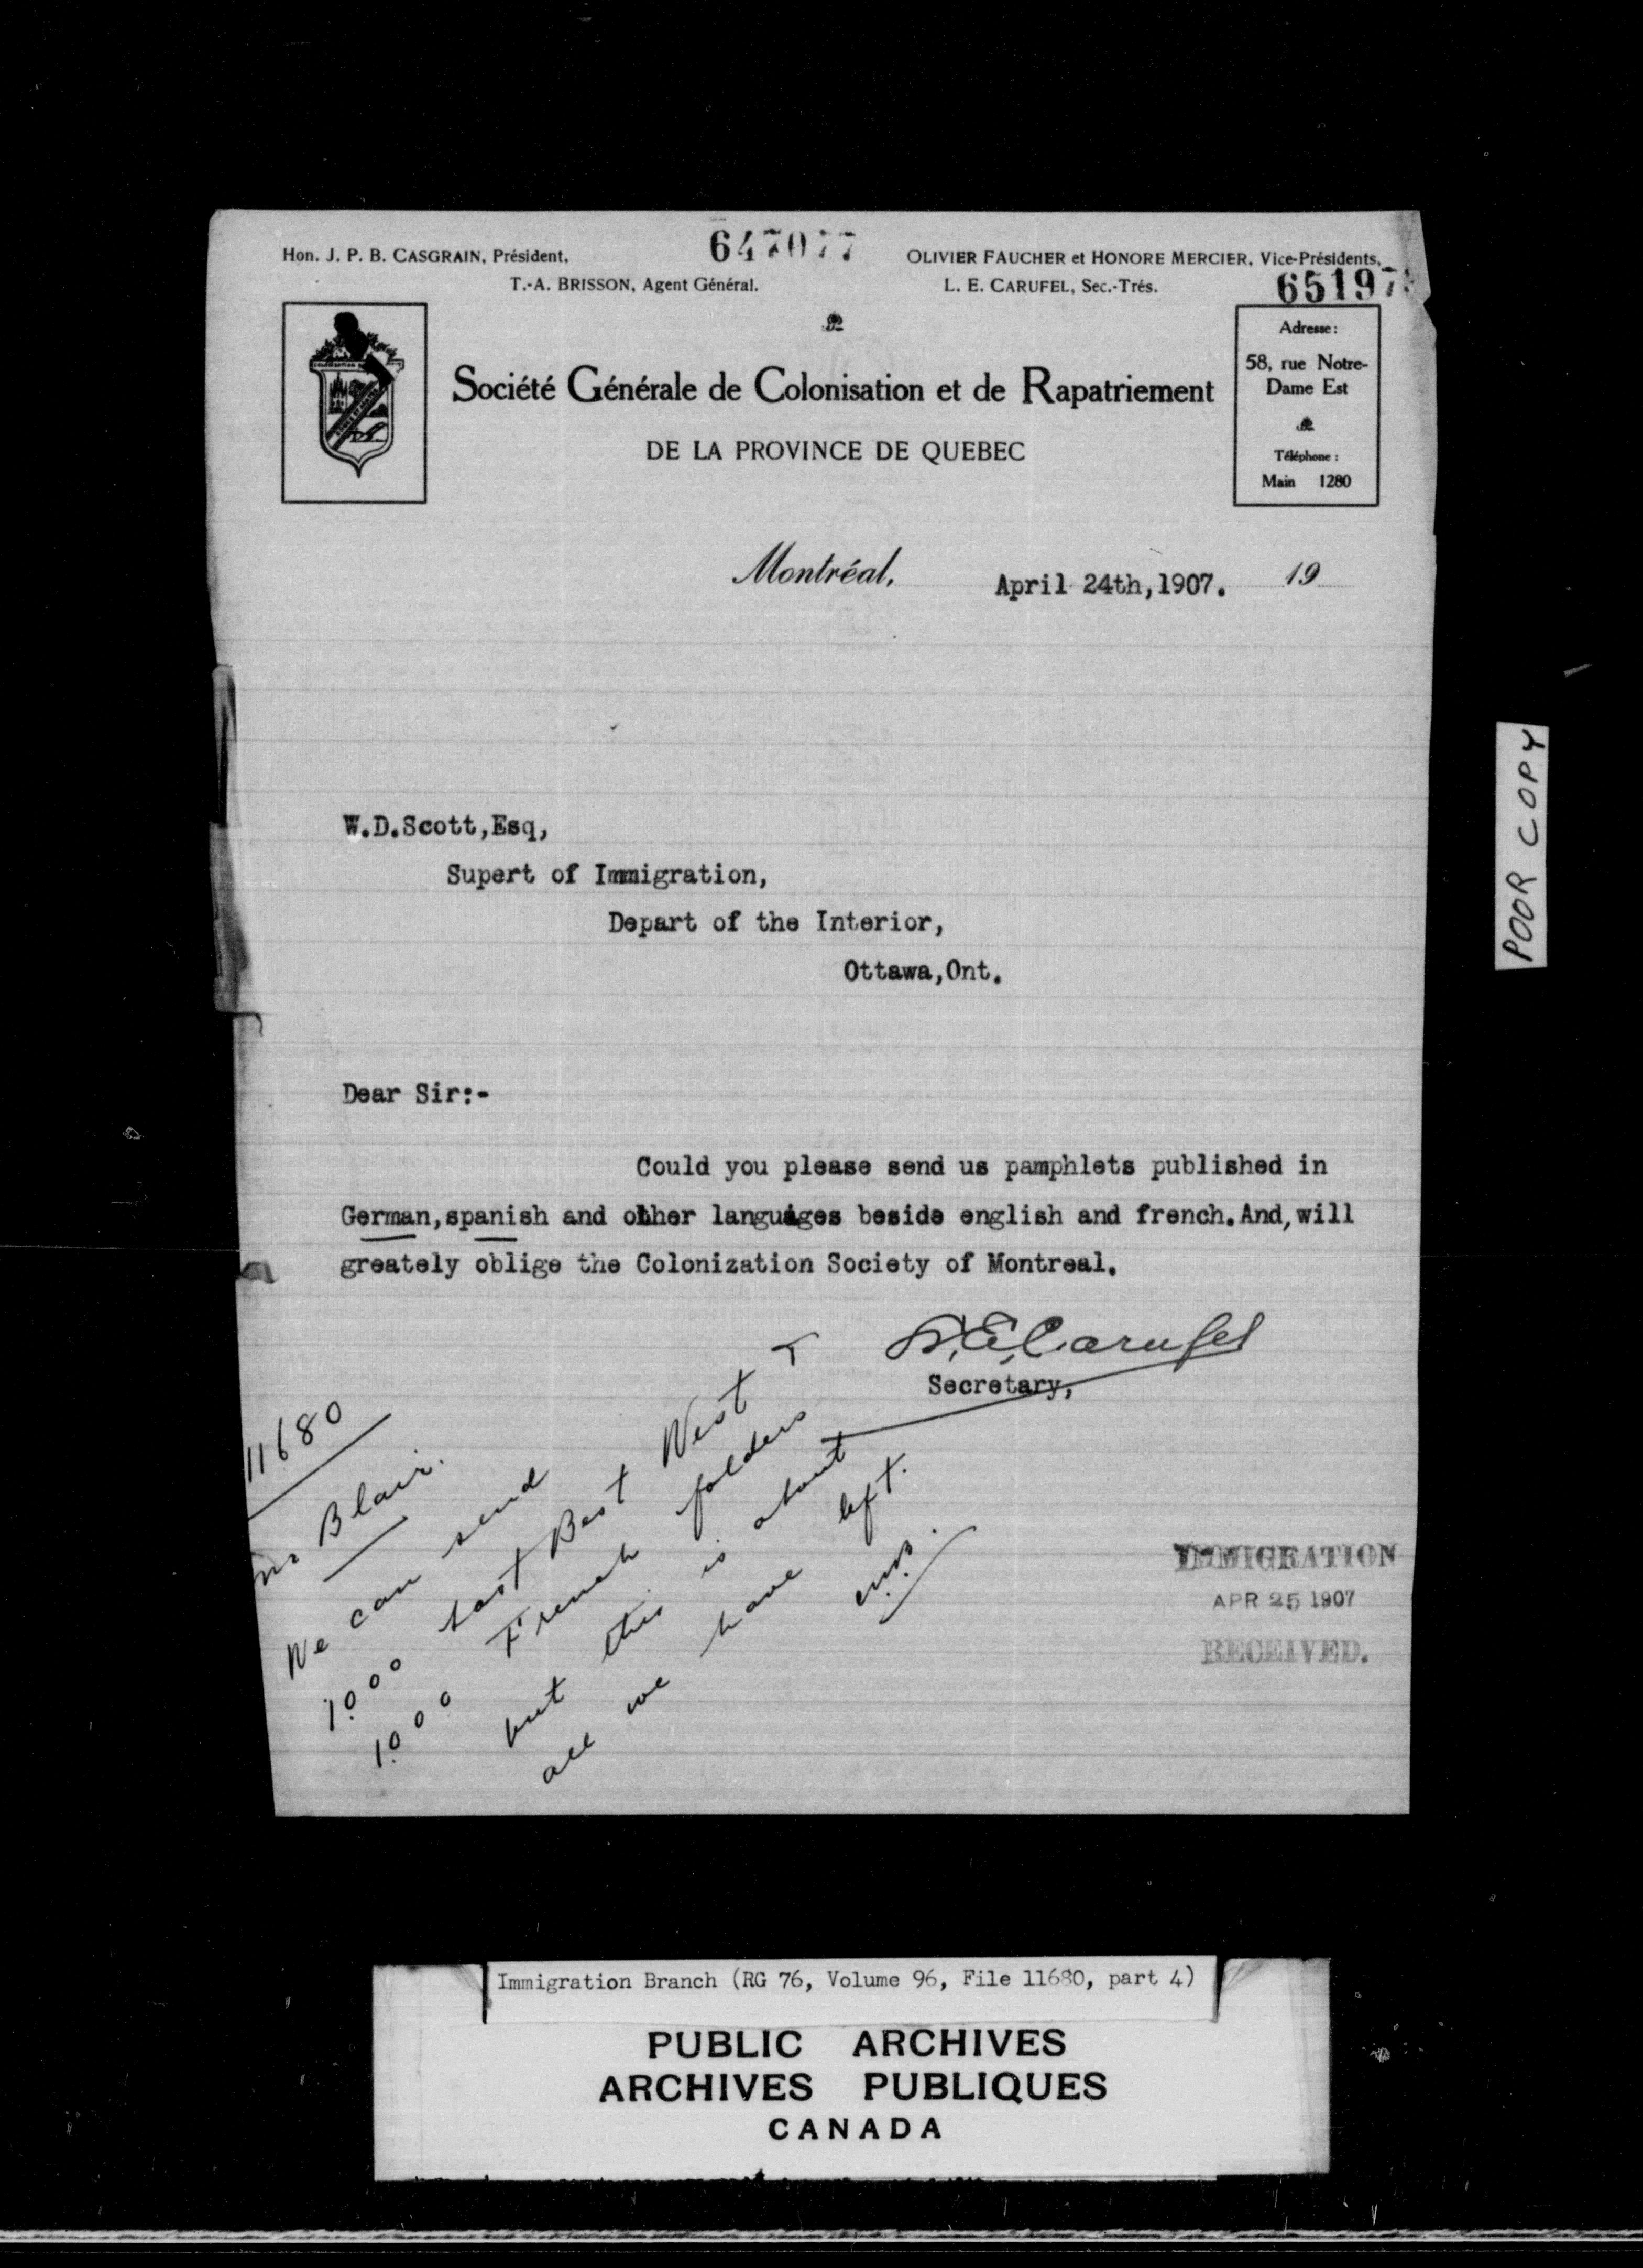 Hon. J. P. B. CASGRAIN, Président,
647077
OLIVIER FAUCHER et HONORE MERCIER, Vice-Présidents,
T.-A. BRISSON, Agent Général.
L. E. CARUFEL, Sec.-Trés.
65197
Adresse:
58, rue Notre-
Dame Est
Téléphone :
Main 1280
Société Générale de Colonisation et de Rapatriement
DE LA PROVINCE DE QUEBEC
Montréal, April 24th,1907. 19
W.D.Scott,Esq,
Supert of Immigration,
Depart of the Interior,
Ottawa,Ont.
Dear Sir:-
Could you please send us pamphlets published in
German,spanish and other languages beside english and french.And,will
greately oblige the Colonization Society of Montreal.
L.E.Carufel
Secretary,
11680
Mr Blair.
We can send
1000 Last Best West &
1000 French folders
but this is about
all we have left.
IMMIGRATION
APR 25 1907
RECEIVED.
POOR COPY
Immigration Branch (RG 76, Volume 96, File 11680, part 4)
PUBLIC ARCHIVES
ARCHIVES PUBLIQUES
CANADA